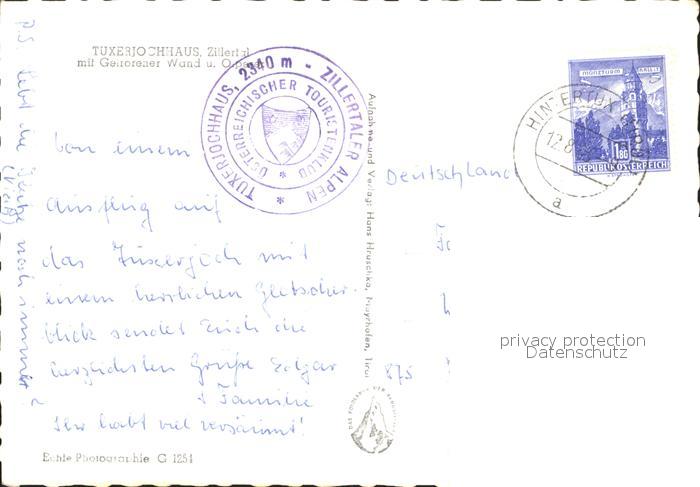 TUXERJOCHHAUS, Zillertal
mit Gefrorener Wand u. Olperer
TUXERJOCHHAUS, 2340 m - ZILLERTALER ALPEN *
ÖSTERREICHISCHER TOURISTENKLUB *
MÜNZTURM HALL I.T.
1.80
REPUBLIK ÖSTERREICH
HINTERTUX
12.8
a
Von einem
Ausflug auf
das Tuxerjoch mit
einem herrlichen Gletscher-
blick sendet Euch die
herzlichsten Grüße Edgar
+ Familie
Ihr habt viel versäumt!
P.S. Lebt die
noch immer?
Echte Photographie G 1251
Aufnahme und Verlag: Hans Hruschka, Mayrhofen, Tirol
Deutschland
875
privacy protection
Datenschutz